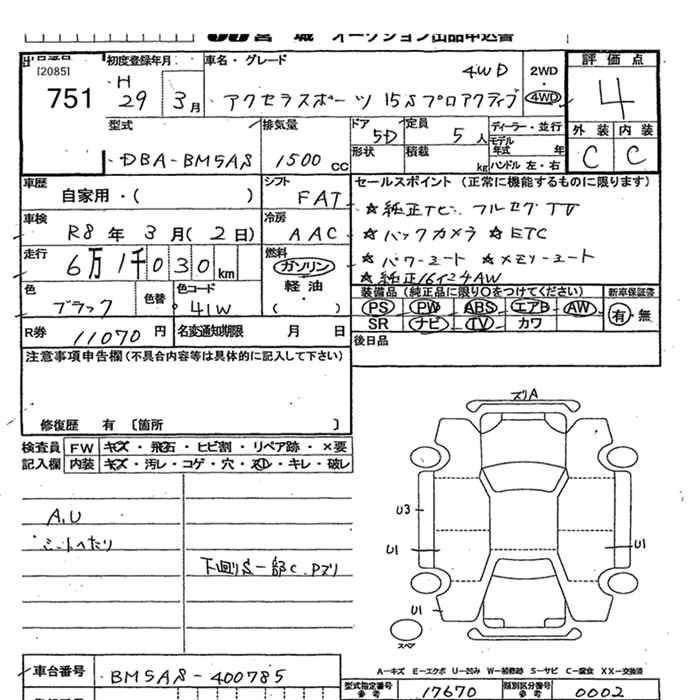 宮 城 オークション出品申込書
[2085]
751
初度登録年月 車名・グレード
H 29 3月 アクセラスポーツ 15Sプロアクティブ 4WD
2WD
4WD
評価点
4
外装 内装
C C
型式 排気量
DBA-BM5AS 1500 CC
ドア 5D 定員 5人
形状 積載 kg
ディーラー・並行
モデル年式 年
ハンドル 左・右
車歴 自家用・( )
シフト FAT
車検 R8年 3月(2日)
冷房 AAC
走行 6万1千030km
燃料 ガソリン 軽油・( )
色 ブラック 色替
色コード 41W
R券 11070円 名変通知期限 月 日
セールスポイント(正常に機能するものに限ります)
☆バックカメラ ☆ETC
☆純正16インチAW
装備品(純正品に限り〇をつけてください) 新車保証書
PS PW ABS エアB AW 有・無
SR ナビ TV カワ
後日品
注意事項申告欄(不具合内容等は具体的に記入して下さい)
修復歴 有 [箇所 ]
検査員 FW キズ・飛石・ヒビ割・リペア跡・×要
記入欄 内装 キズ・汚レ・コゲ・穴・スレ・キレ・破レ
A,U
シートヘたり
下廻りS一部C.Pズリ
ズリA
U3
U1
U1
U1
スペア
A-キズ E-エクボ U-凹み W-補修跡 S-サビ C-腐食 XX-交換済
車台番号 BM5AS-400785
型式指定番号 参考 17670 類別区分番号 参考 0002